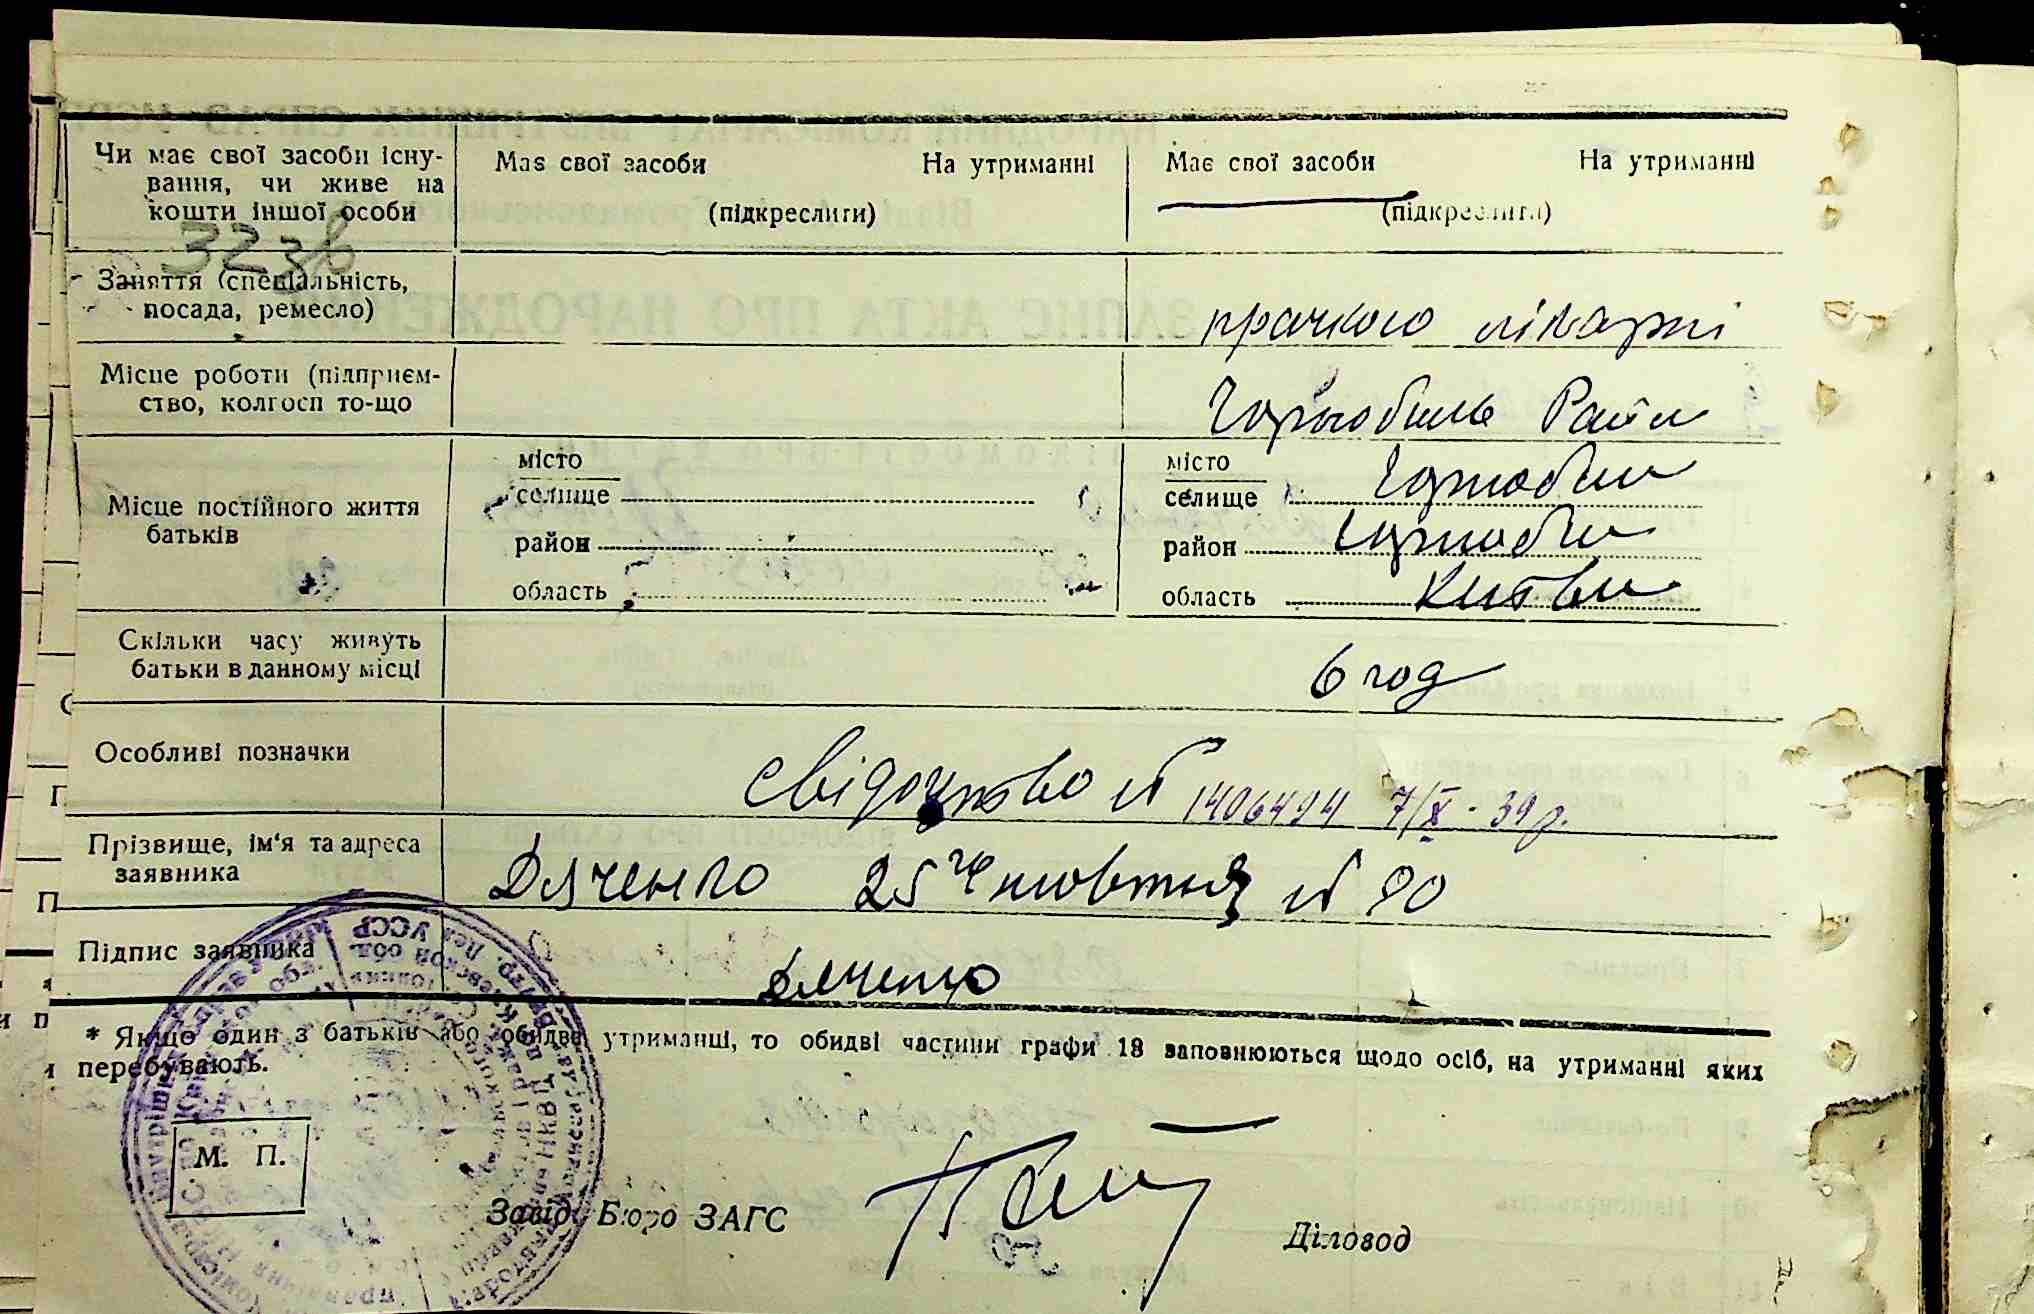 Чи має свої засоби існу-
вання, чи живе на
кошти іншої особи
Має свої засоби На утриманні
(підкреслити)
Має свої засоби На утриманні
(підкреслити)
32 зв
Заняття (спеціальність,
посада, ремесло)
прачкою лікарні
Місце роботи (підприєм-
ство, колгосп то-що
Чорнобиль Райл
Місце постійного життя
батьків
місто
селище
район
область
місто
селище Чорнобил
район Чорнобил
область Київськ
Скільки часу живуть
батьки в данному місці
6 год
Особливі позначки
свідоцтво № 1406494 7/X - 39 р.
Прізвище, ім'я та адреса
заявника
Дяченко 25 Жовтня № 90
Підпис заявника
Дяченко
* Якщо один з батьків або обидва утриманці, то обидві частини графи 18 заповнюються щодо осіб, на утриманні яких
перебувають.
М. П.
Завід. Бюро ЗАГС
Діловод